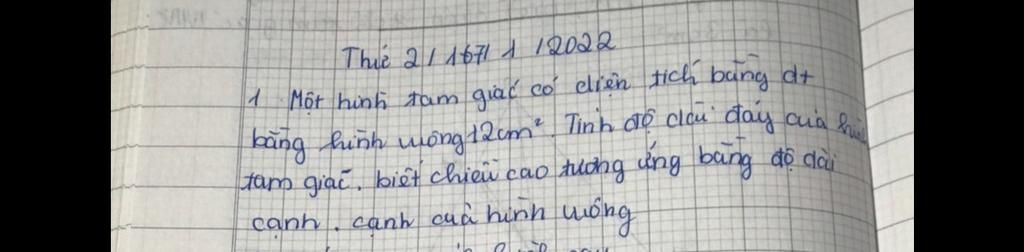 Thứ 2 / 167 / 1 / 2022
1 Một hình tam giác có diện tích bằng dt
bằng hình vuông 12cm². Tính độ dài đáy của
tam giác, biết chiều cao tương ứng bằng độ dài
cạnh. cạnh của hình vuông